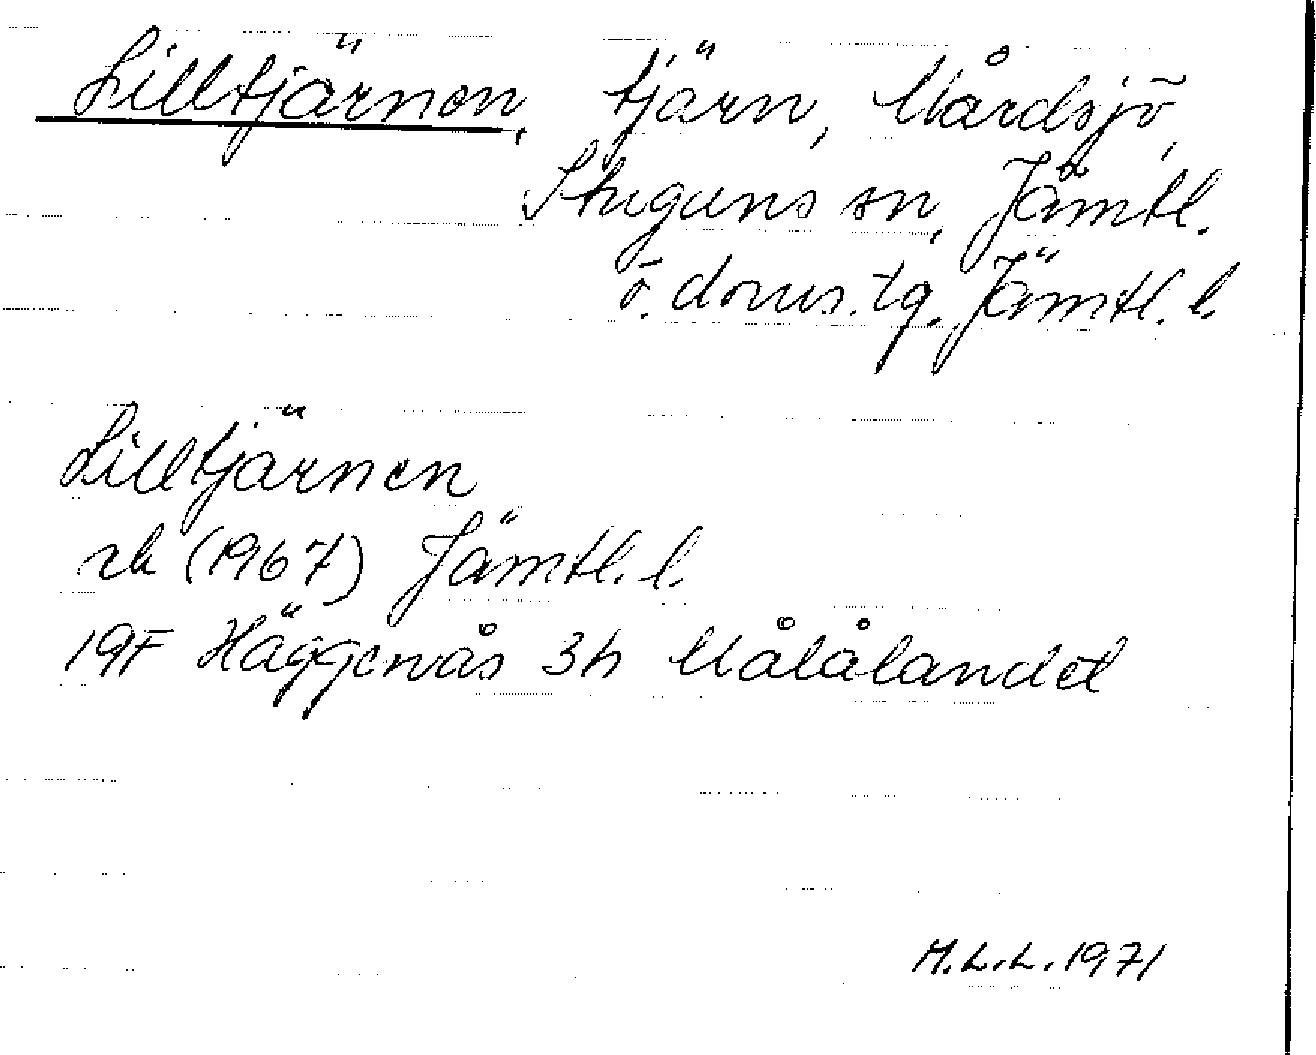 Lilltjärnen, tjärn, Mårdsjö,
Stuguns sn, Jämtl.
ö. doms.tg. Jämtl. l.
Lilltjärnen
rk (1967) Jämtl. l.
19F Häggenås 3h Målålandet
M.L.L. 1971